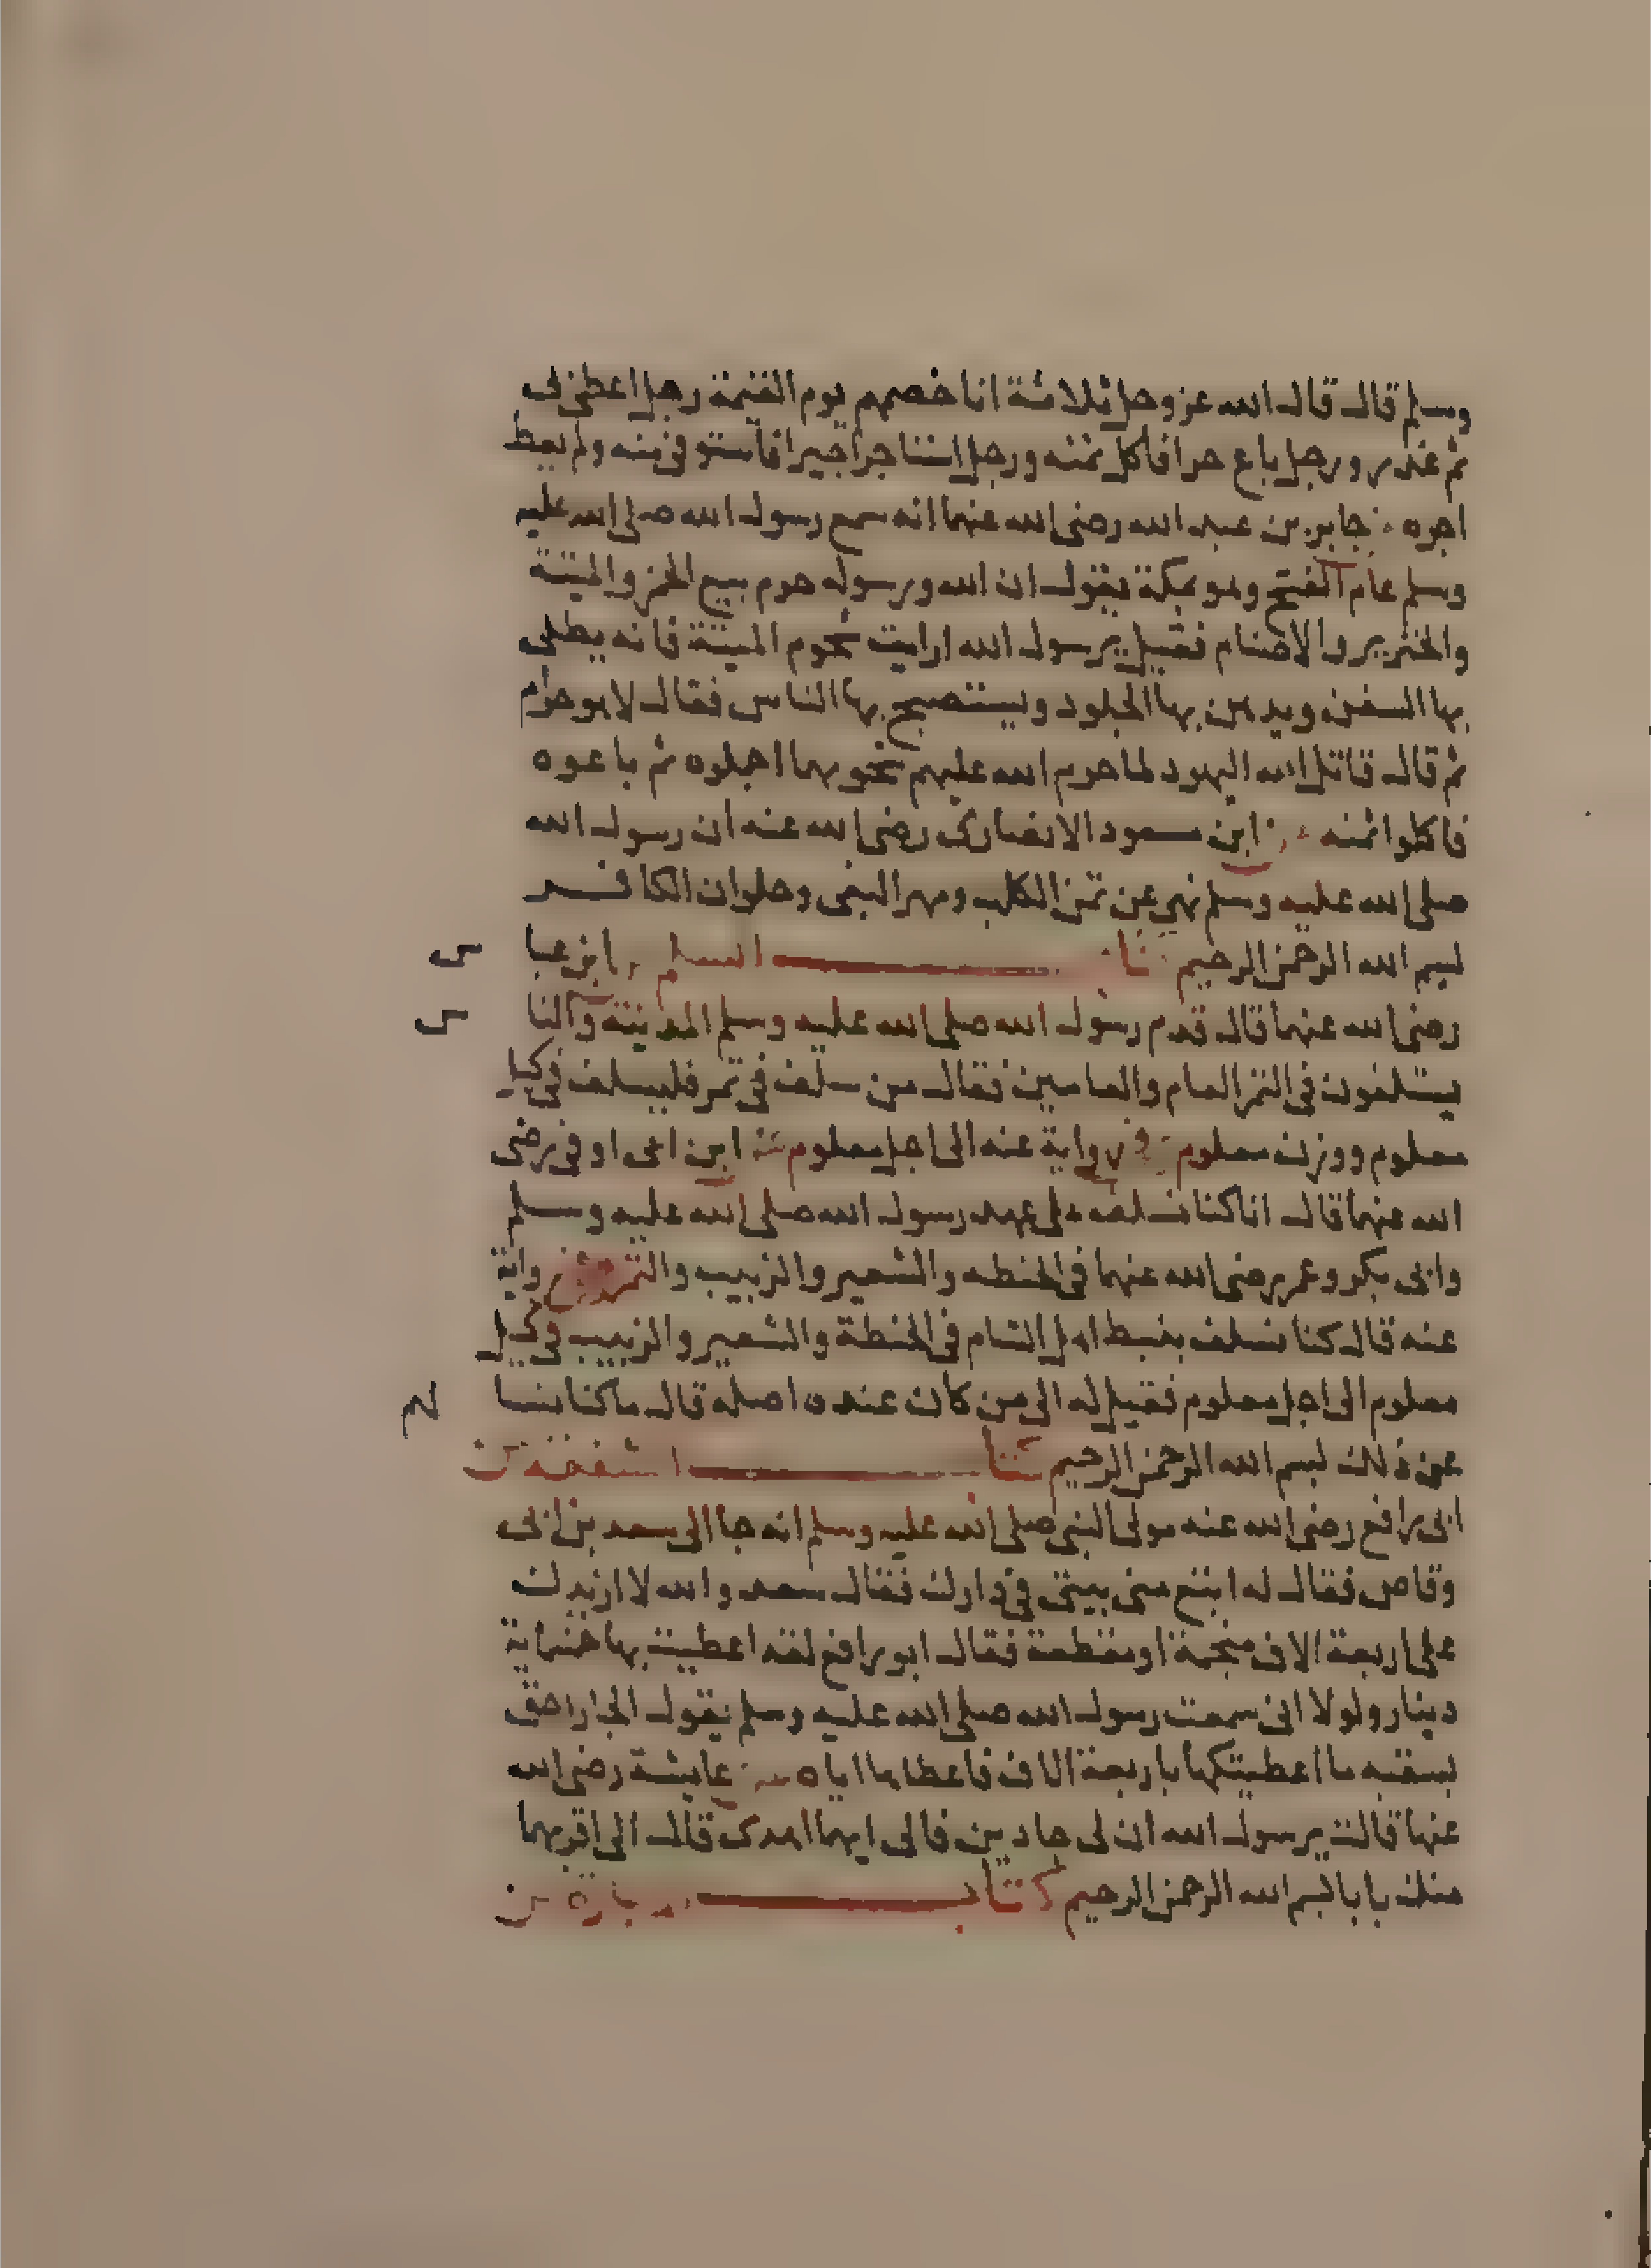 وسلم قال قال الله عز وجل ثلاثة انا خصمهم يوم القيمة رجل اعطى بى
ثم غدر ورجل باع حرا فاكل ثمنه ورجل استاجر اجيرا فاستوفى منه ولم يعط
اجره جابر بن عبد الله رضى الله عنهما انه سمع رسول الله صلى الله عليه
وسلم عام الفتح وهو بمكة يقول ان الله ورسوله حرم بيع الخمر والميتة
والخنزير والاصنام فقيل يرسول الله ارايت شحوم الميتة فانه يطلى
بها السفن ويدهن بها الجلود ويستصبح بها الناس فقال لا هو حرام
ثم قال قاتل الله اليهود لما حرم الله عليهم شحومها اجملوه ثم باعوه
فاكلوا ثمنه ابن مسعود الانصارى رضى الله عنه ان رسول الله
صلى الله عليه وسلم نهى عن ثمن الكلب ومهر البغى وحلوان الكا
بسم الله الرحمن الرحيم السلم ابن عبا س
رضى الله عنهما قال قدم رسول الله صلى الله عليه وسلم المدينة والنا س
يستلفون فى التمر العام والعامين فقال من سلف فى تمر فليسلف فى كيل
معلوم ووزن معلوم وفى رواية عنه الى اجل معلوم ابن ابى اوفى رضى
الله عنهما قال انا كنا نسلف على عهد رسول الله صلى الله عليه وسلم
وابى بكر وعمر رضى الله عنهما فى الحنطه والشعير والزبيب والتمر رواية
عنه قال كنا نسلف بنبيط اهل الشام فى الحنطة والشعير والزبيب فى كيل
معلوم الى اجل معلوم فقيل له الى من كان عنده اصله قال ما كنا نسا لهم
عن ذلك بسم الله الرحمن الرحيم كتا
ابى رافع رضى الله عنه مولى النبى صلى الله عليه وسلم انه جا الى سعد بن ابى
وقاص فقال له ابتع منى بيتى فى دارك فقال سعد والله لا ازيدك
على اربعة الاف منجمة او مقطعة فقال ابو رافع لقد اعطيت بها خمسماية
دينار ولولا انى سمعت رسول الله صلى الله عليه وسلم يقول الجار احق
بسقبه ما اعطيتكها باربعة الاف فاعطاها اياه عايشة رضى الله
عنها قالت يرسول الله ان لى جارين فالى ايهما اهدى قال الى اقربهما
منك بابا بسم الله الرحمن الرحيم كتاب